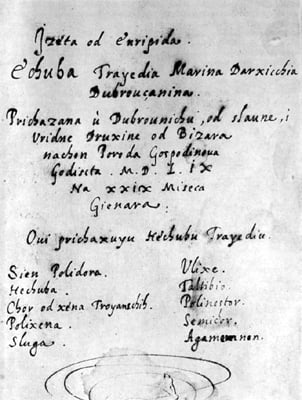 Izeta od Euripida.
Echuba Trayedia Marina Darxicchia
Dubrouçanina.
Prichazana ù Dubrounichu, od slaune, i
Vridne Druxine od Bizara
nachon Poroda Gospodinova
Godiscta. M. D. L. IX
Na XXIX Miseca
Gienara.
Oui prichaxuyu Hechubu Trayediu.
Sien Polidora.
Hechuba.
Chor od xéna Troyanschih.
Polixena.
Sluga.
Ulixe.
Taltibio.
Polinestor.
Semicor.
Agamemnon.